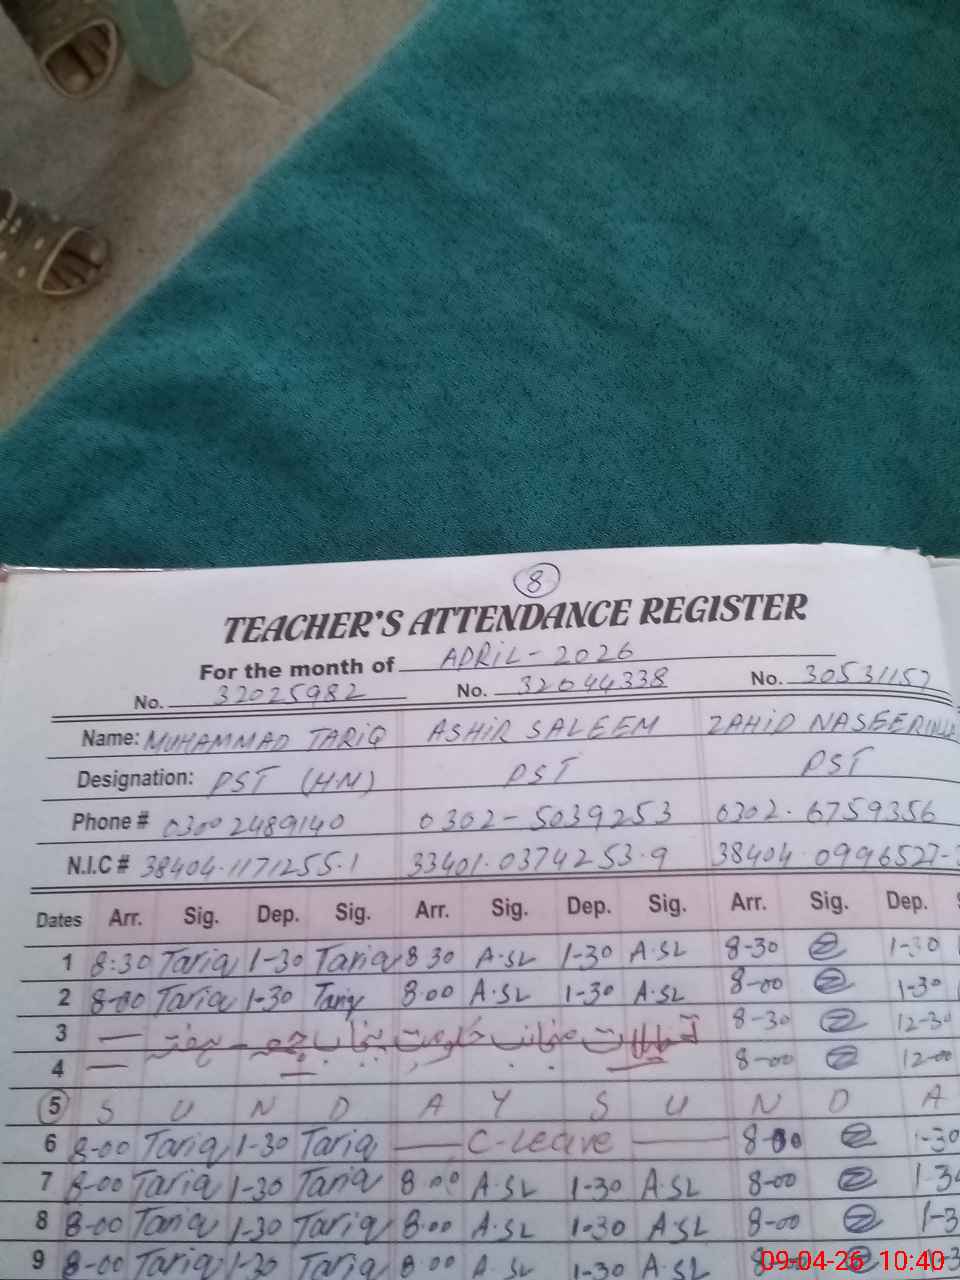 8
TEACHER'S ATTENDANCE REGISTER
For the month of APRIL - 2026
No. 32025982 No. 32044338 No. 30531157
Name: MUHAMMAD TARIQ ASHIR SALEEM ZAHID NASEERULLA
Designation: PST (HM) PST PST
Phone # 03002489140 0302-5039253 0302.6759356
N.I.C # 38404.1171255.1 33401.0374253.9 38404.0996527-
Dates Arr. Sig. Dep. Sig. Arr. Sig. Dep. Sig. Arr. Sig. Dep. S
1 8:30 Tariq 1-30 Tariq 8 30 A.SL 1-30 A.SL 8-30 1-30
2 8-00 Tariq 1-30 Tariq 8.00 A.SL 1-30 A.SL 8-00 1-30
3 — تعطیلات منجانب حکومت پنجاب جمعہ - ہفتہ 8-30 12-30
4 — 8-00 12-00
5 S U N D A Y S U N D A
6 8-00 Tariq 1-30 Tariq — C-Leave — 8-00 1-30
7 8-00 Tariq 1-30 Tariq 8.00 A.SL 1-30 A.SL 8-00 1-30
8 8-00 Tariq 1-30 Tariq 8.00 A.SL 1-30 A.SL 8-00 1-3
9 8-00 Tariq 1-30 Tariq 8.00 A.SL 1-30 A.SL 8-00 1-3
09-04-26 10:40